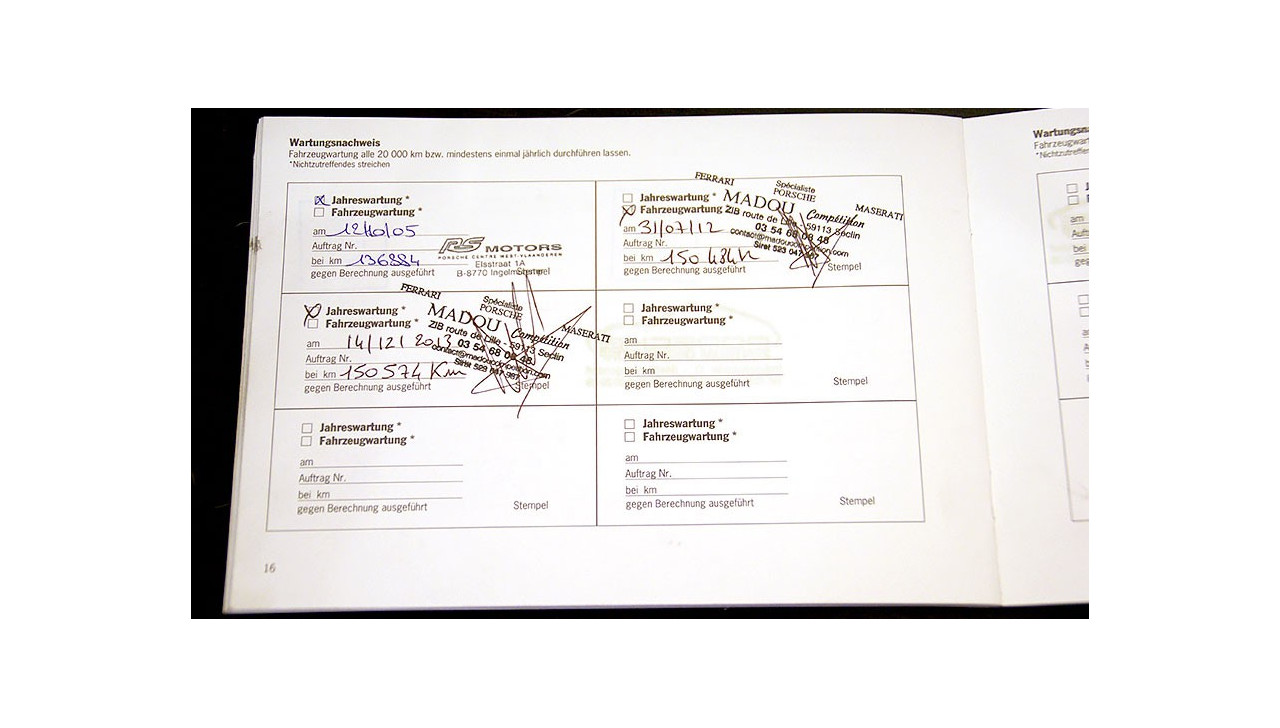 Wartungsnachweis
Fahrzeugwartung alle 20 000 km bzw. mindestens einmal jährlich durchführen lassen.
*Nichtzutreffendes streichen
Jahreswartung *
Fahrzeugwartung *
am 12/10/05
Auftrag Nr.
bei km 136884
gegen Berechnung ausgeführt
Stempel
RS MOTORS
PORSCHE CENTRE WEST-VLAANDEREN
Elsstraat 1A
B-8770 Ingelmunster
Jahreswartung *
Fahrzeugwartung *
am 31/07/12
Auftrag Nr.
bei km 150 484
gegen Berechnung ausgeführt
Stempel
FERRARI
Spécialiste
PORSCHE
MASERATI
MADOU Compétition
ZIB route de Lille - 59113 Seclin
03 54 68 08 48
Siret 523 047 987
Jahreswartung *
Fahrzeugwartung *
am 14/12/2013
Auftrag Nr.
bei km 150 574 Km
gegen Berechnung ausgeführt
Stempel
FERRARI
Spécialiste
PORSCHE
MASERATI
MADOU Compétition
ZIB route de Lille - 59113 Seclin
03 54 68 08 48
Siret 523 047 987
Jahreswartung *
Fahrzeugwartung *
am
Auftrag Nr.
bei km
gegen Berechnung ausgeführt
Stempel
Jahreswartung *
Fahrzeugwartung *
am
Auftrag Nr.
bei km
gegen Berechnung ausgeführt
Stempel
Jahreswartung *
Fahrzeugwartung *
am
Auftrag Nr.
bei km
gegen Berechnung ausgeführt
Stempel
16